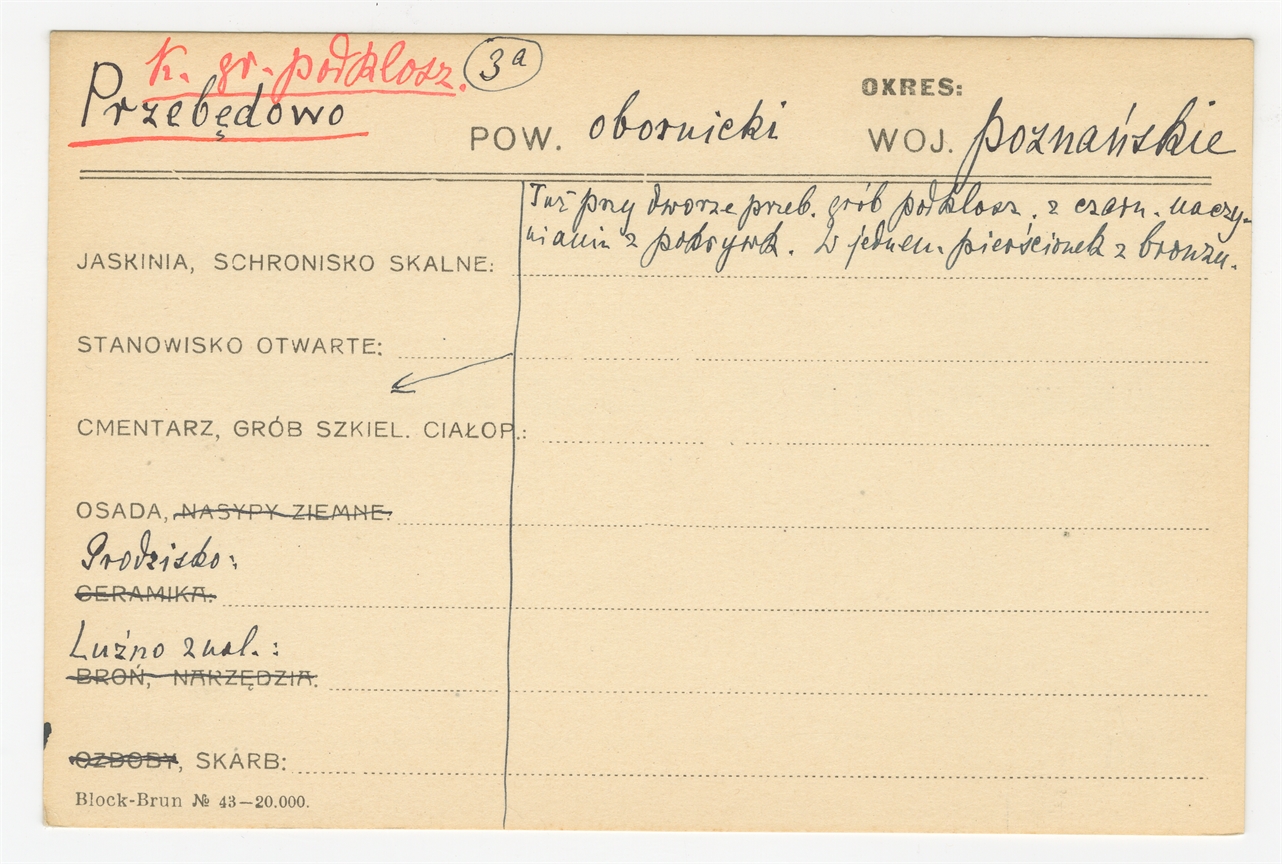 K. gr. podklosz. 3a
Przebędowo
OKRES:
POW. obornicki WOJ. poznańskie
Tuż przy dworze przeb. grób podklosz. z czarn. naczy-
niami z pokrywk. W jednem pierścionek z bronzu.
JASKINIA, SCHRONISKO SKALNE:
STANOWISKO OTWARTE:
CMENTARZ, GRÓB SZKIEL. CIAŁOP.:
OSADA, NASYPY ZIEMNE.
Grodzisko:
CERAMIKA.
Luźno znal.:
BROŃ, NARZĘDZIA.
OZDOBY, SKARB:
Block-Brun № 43—20.000.